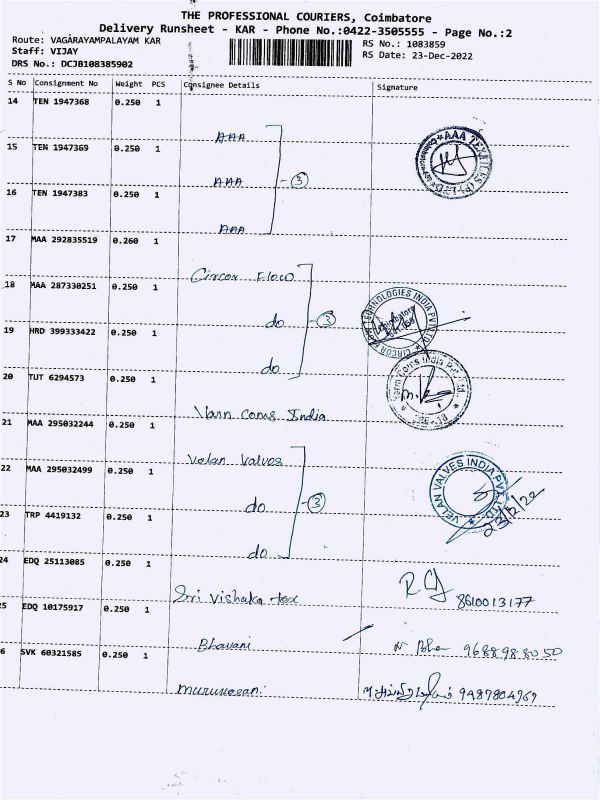 THE PROFESSIONAL COURIERS, Coimbatore
Delivery Runsheet - KAR - Phone No.:0422-3505555 - Page No.:2
Route: VAGARAYAMPALAYAM KAR
RS No.: 1083859
Staff: VIJAY
RS Date: 23-Dec-2022
DRS No.: DCJB108385902
S No Consignment No Weight PCS Consignee Details Signature
14 TEN 1947368 0.250 1 AAA
15 TEN 1947369 0.250 1 AAA 3 AAA TEXTILES (P) LTD
16 TEN 1947383 0.250 1 AAA
17 MAA 292835519 0.260 1 Circor Flow
18 MAA 287330251 0.250 1 do 3 CIRCOR FLOW TECHNOLOGIES INDIA PVT LTD
19 HRD 399333422 0.250 1 do
20 TUT 6294573 0.250 1 Varn Coms India
21 MAA 295032244 0.250 1 Velan Valves
22 MAA 295032499 0.250 1 do 3 VELAN VALVES INDIA PVT LTD 23/12/22
23 TRP 4419132 0.250 1 do
24 EDQ 25113085 0.250 1 Sri Vishaka tex 8610013177
25 EDQ 10175917 0.250 1 Bhavani 9688988050
6 SVK 60321585 0.250 1 murukesan: 9487804969